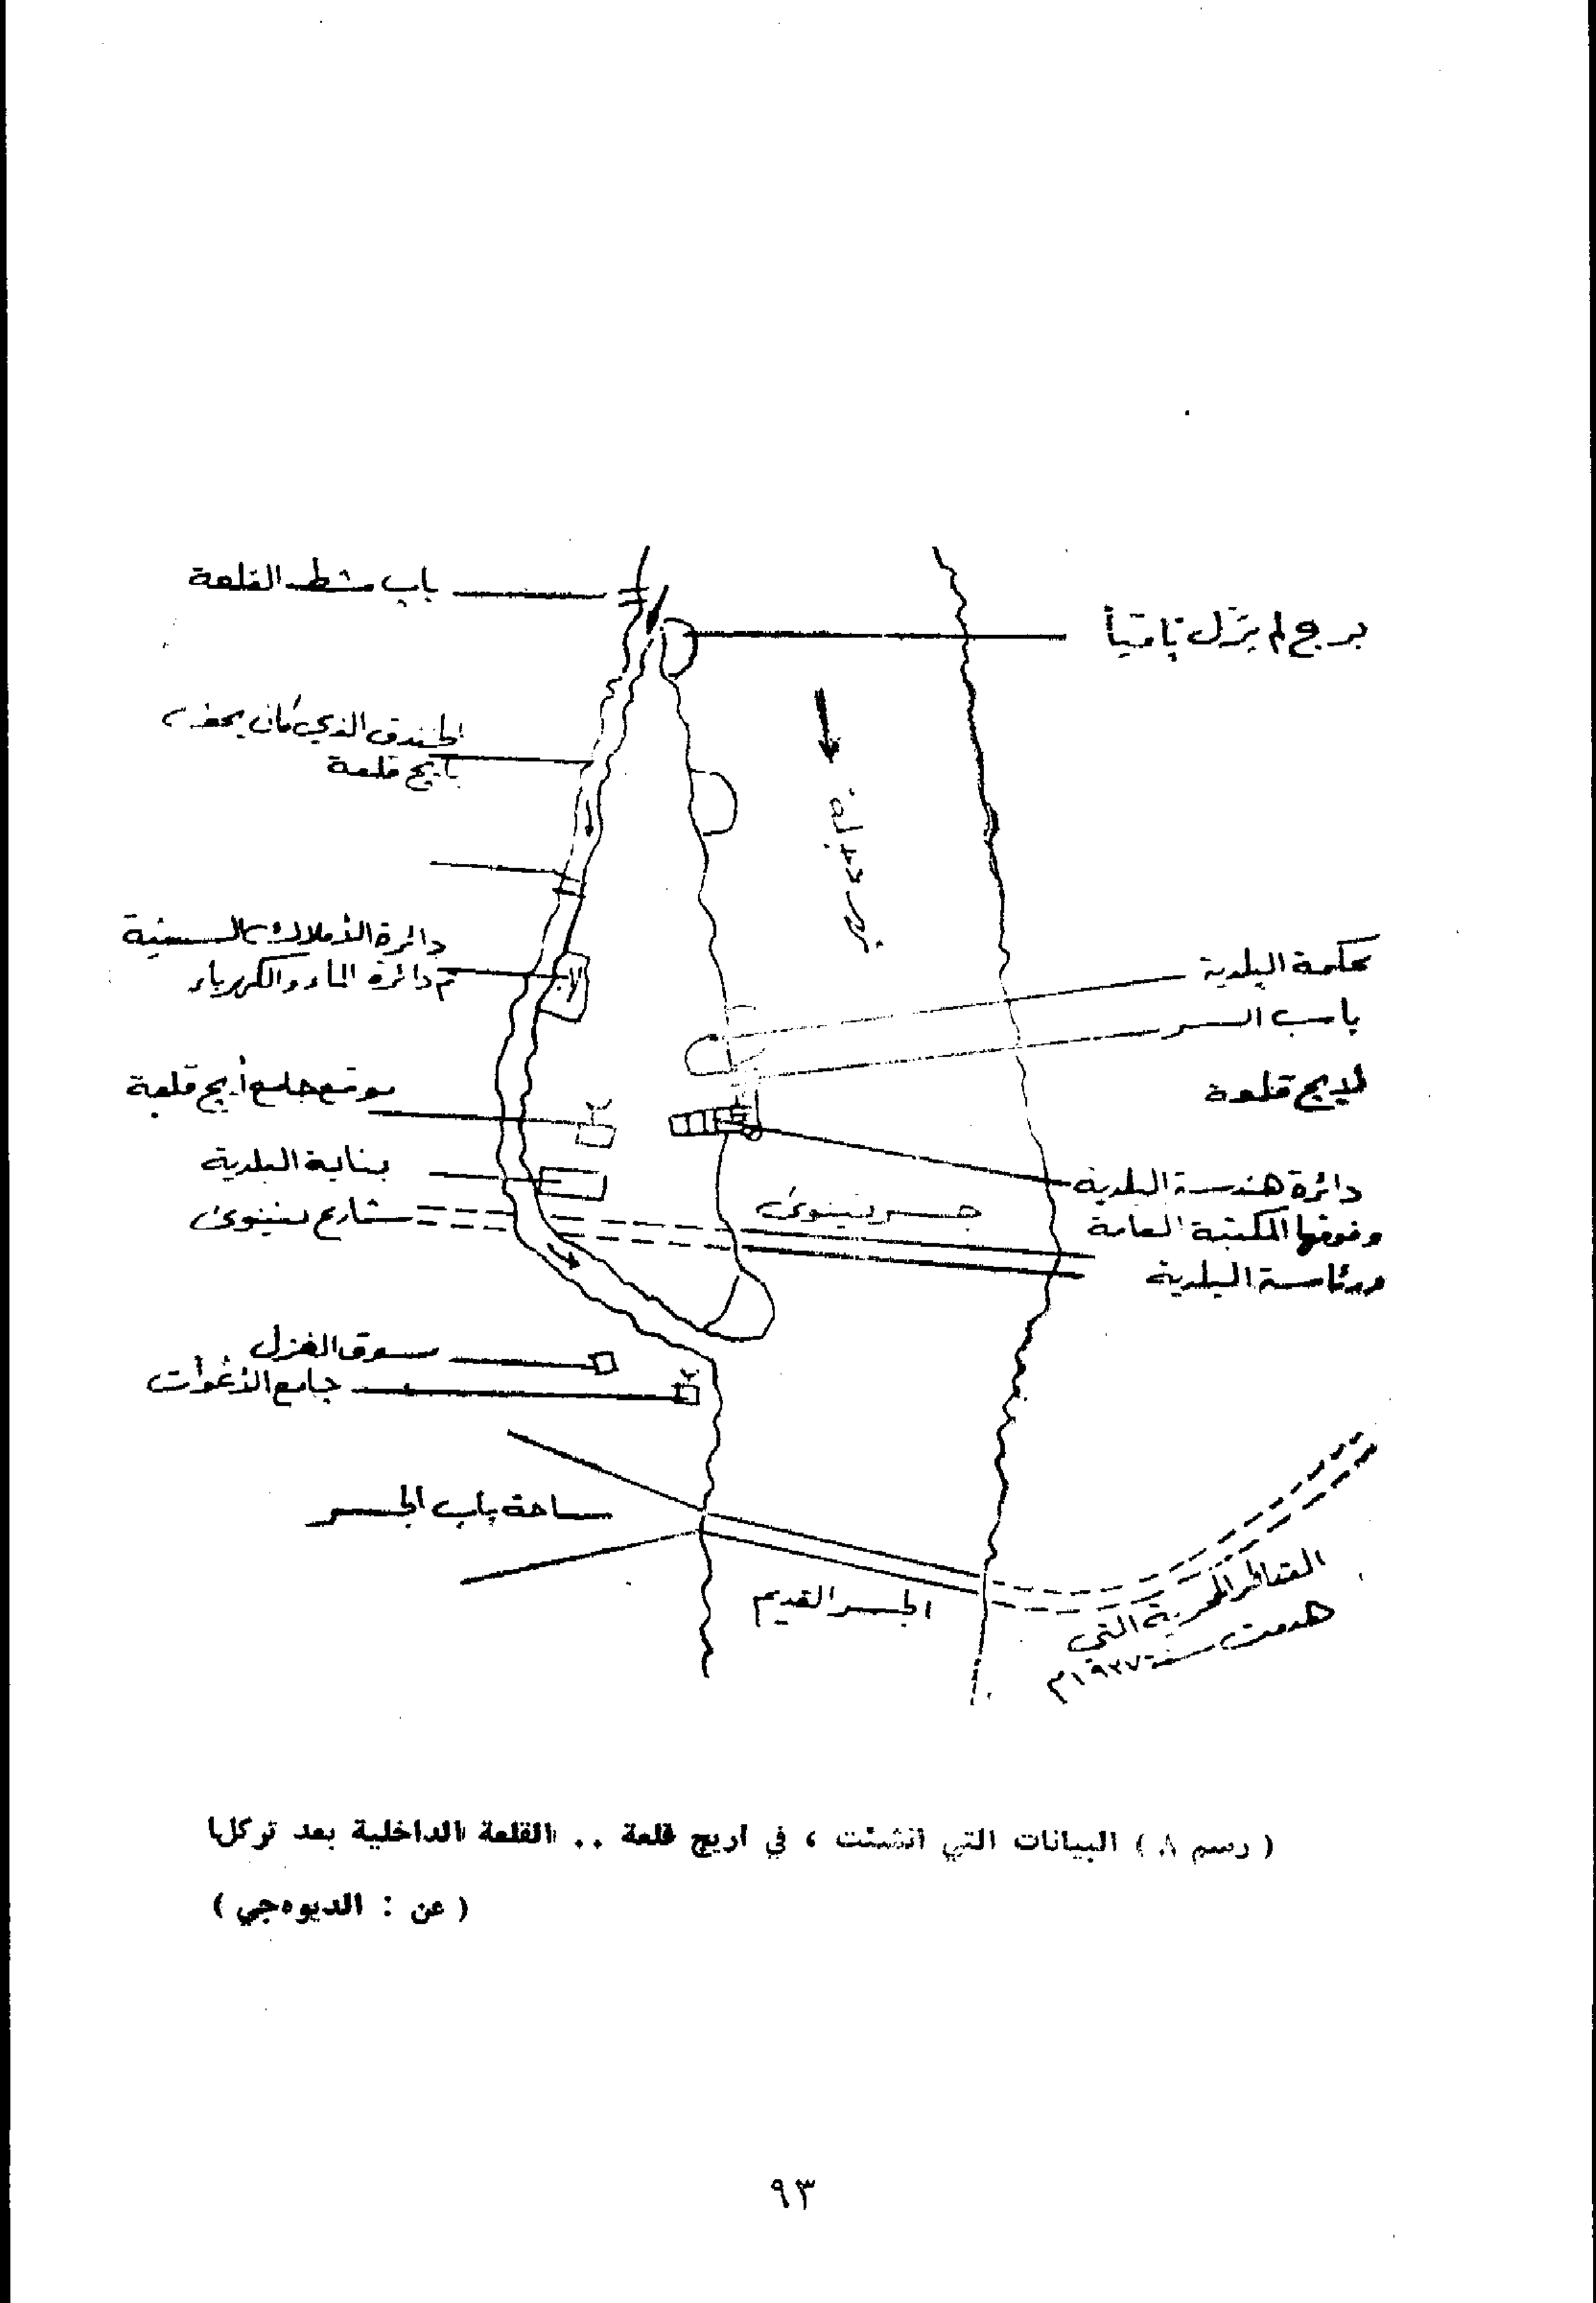 باب شط القلعة
برج لم يزل باقياً
الخندق الذي كان يحف
بأيج قلعة
نهر دجلة
دائرة الأملاك السنية
ثم دائرة الماء والكهرباء
محكمة البلدية
باب السر
لايج قلعة
موقع جامع أيج قلعة
بناية البلدية
شارع نينوى
جسر نينوى
دائرة هندسة البلدية
وفوقها المكتبة العامة
ورئاسة البلدية
سوق الغزل
جامع الأغوات
ساحة باب الجسر
الجسر القديم
القناطر الحجرية التي
هدمت سنة ١٩٣٧م
( رسم ٨ ) البيانات التي انشئت ، في اريج قلعة .. القلعة الداخلية بعد تركها
( عن : الديوه‌جي )
٩٣